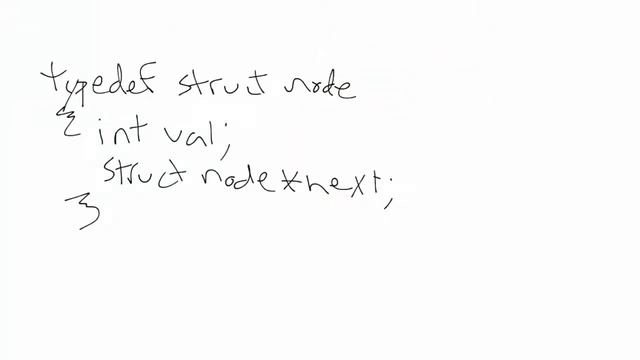 typedef struct node
{ int val;
struct node *next;
}